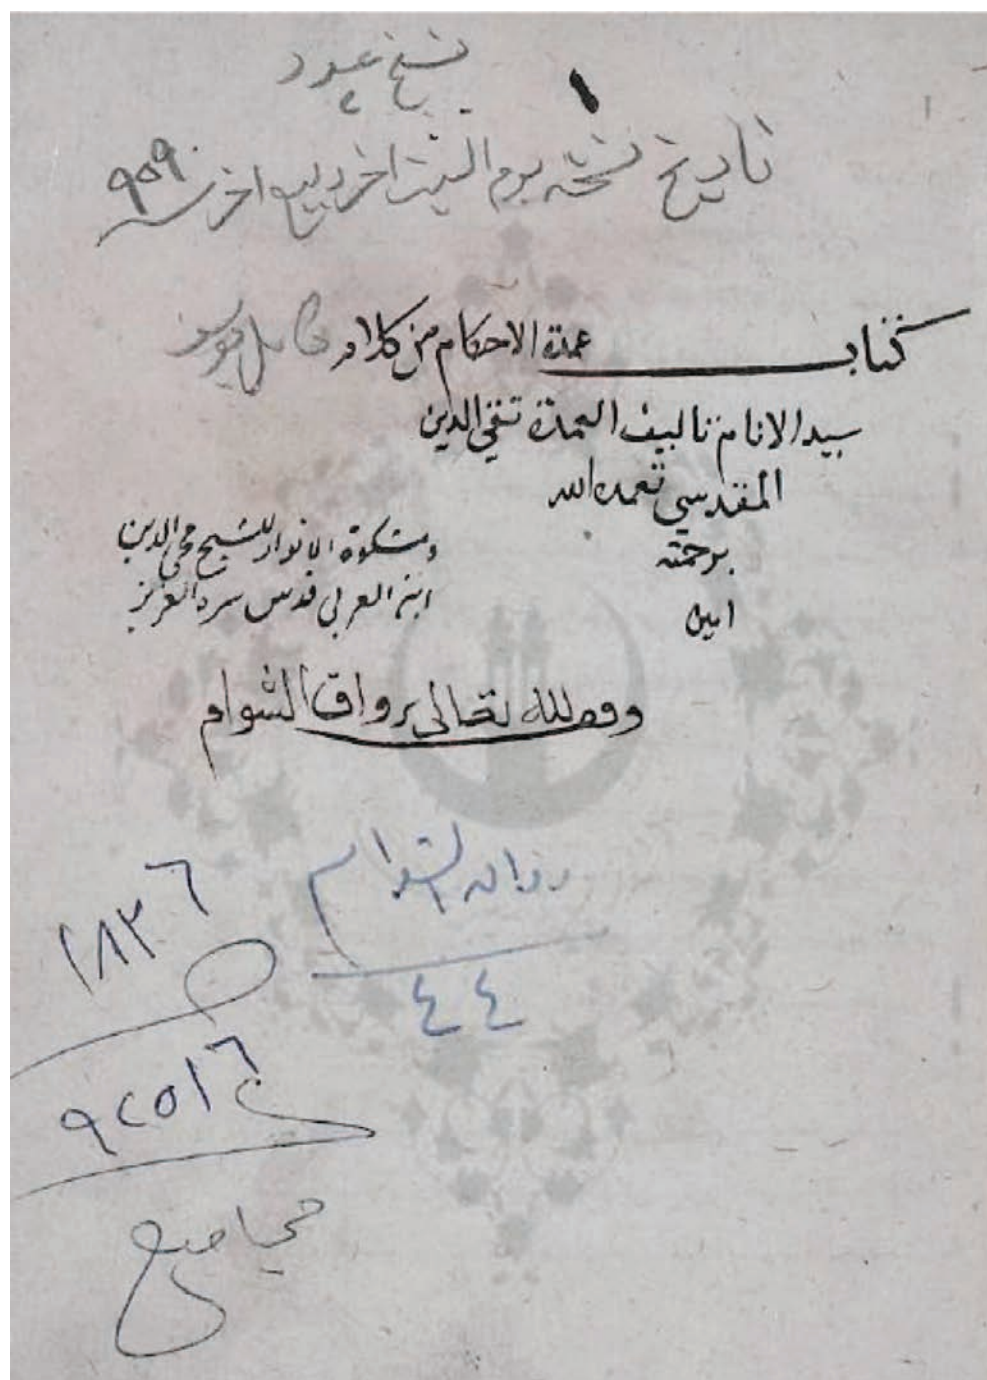 نسخ
تاريخ نسخه يوم السبت اخر ربيع اخر سنه ٩٥٩
كتاب عمدة الاحكام من كلام
سيد الانام تاليف العمدة تقي الدين
المقدسي تغمده الله
برحمته
امين
ومشكوة الانوار للشيخ محي الدين
ابن العربي قدس سره العزيز
وقف لله تعالى برواق الشوام
رواق الشوام
٤٤
١٨٣٦
خ ٩٢٥١٦
مجاميع